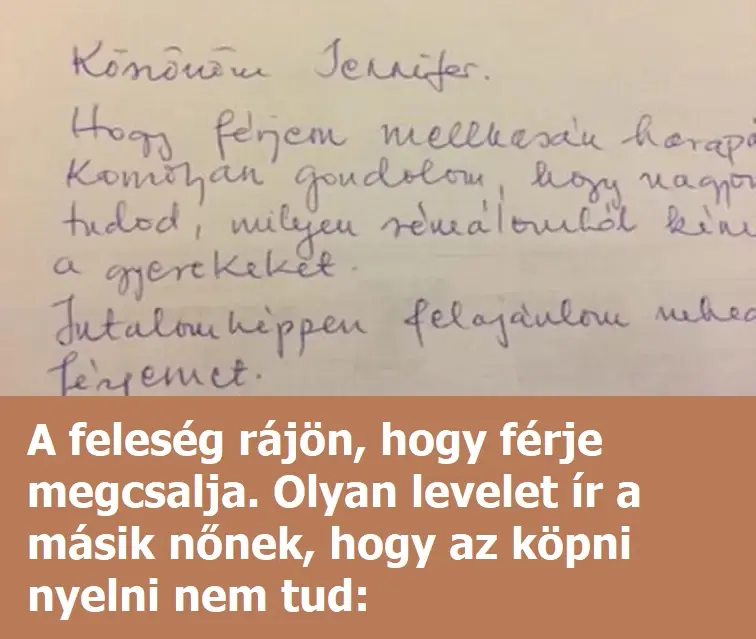 Köszönöm Jennifer.
Hogy férjem mellkasán harapá
Komolyan gondolom, hogy nagyon
tudod, milyen rémálomból kím
a gyerekeket.
Jutalomképpen felajánlom neked
férjemet.
A feleség rájön, hogy férje
megcsalja. Olyan levelet ír a
másik nőnek, hogy az köpni
nyelni nem tud: